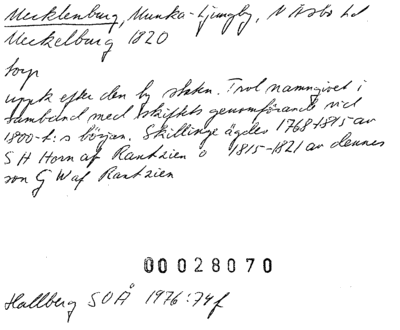 Mecklenburg, Munka-Ljungby, N Åsbo hd
Meckelburg 1820
torp
uppk efter den ty staten. Trol namngivet i
samband med skiftets genomförande vid
1800-t:s början. Skillinge ägdes 1768-1815 av
S H Horn af Rantzien o 1815-1821 av dennes
son G W af Rantzien
00028070
Hallberg SOÅ 1976:74f